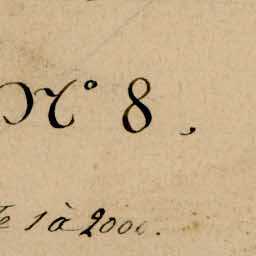 N° 8,
de 1 à 2000.